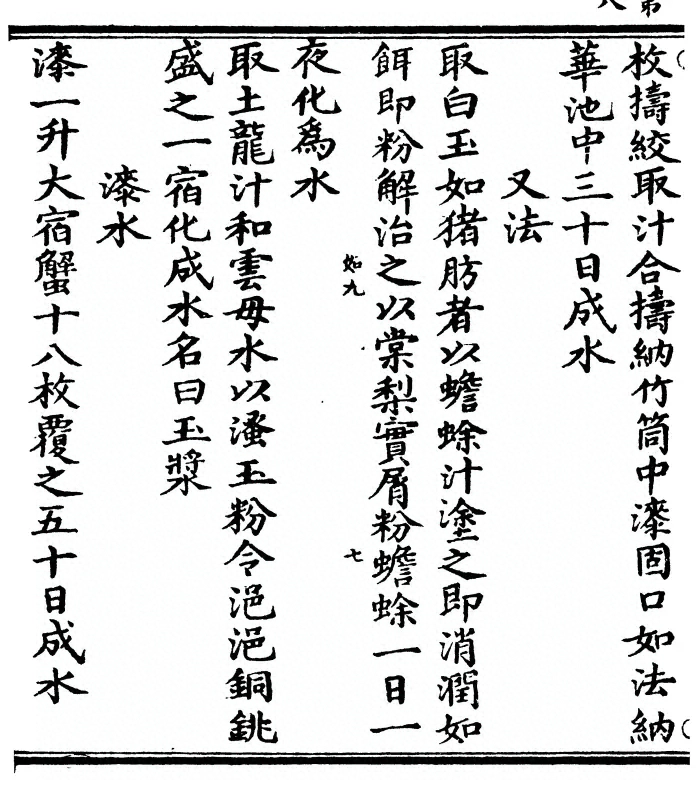 枚擣絞取汁合擣納竹筒中漆固口如法納
華池中三十日成水
又法
取白玉如猪肪者以蟾蜍汁塗之即消潤如
餌即粉解治之以棠梨實屑粉蟾蜍一日一
如九
七
夜化為水
取土龍汁和雲母水以溲玉粉令浥浥銅銚
盛之一宿化成水名曰玉漿
漆水
漆一升大宿蟹十八枚覆之五十日成水